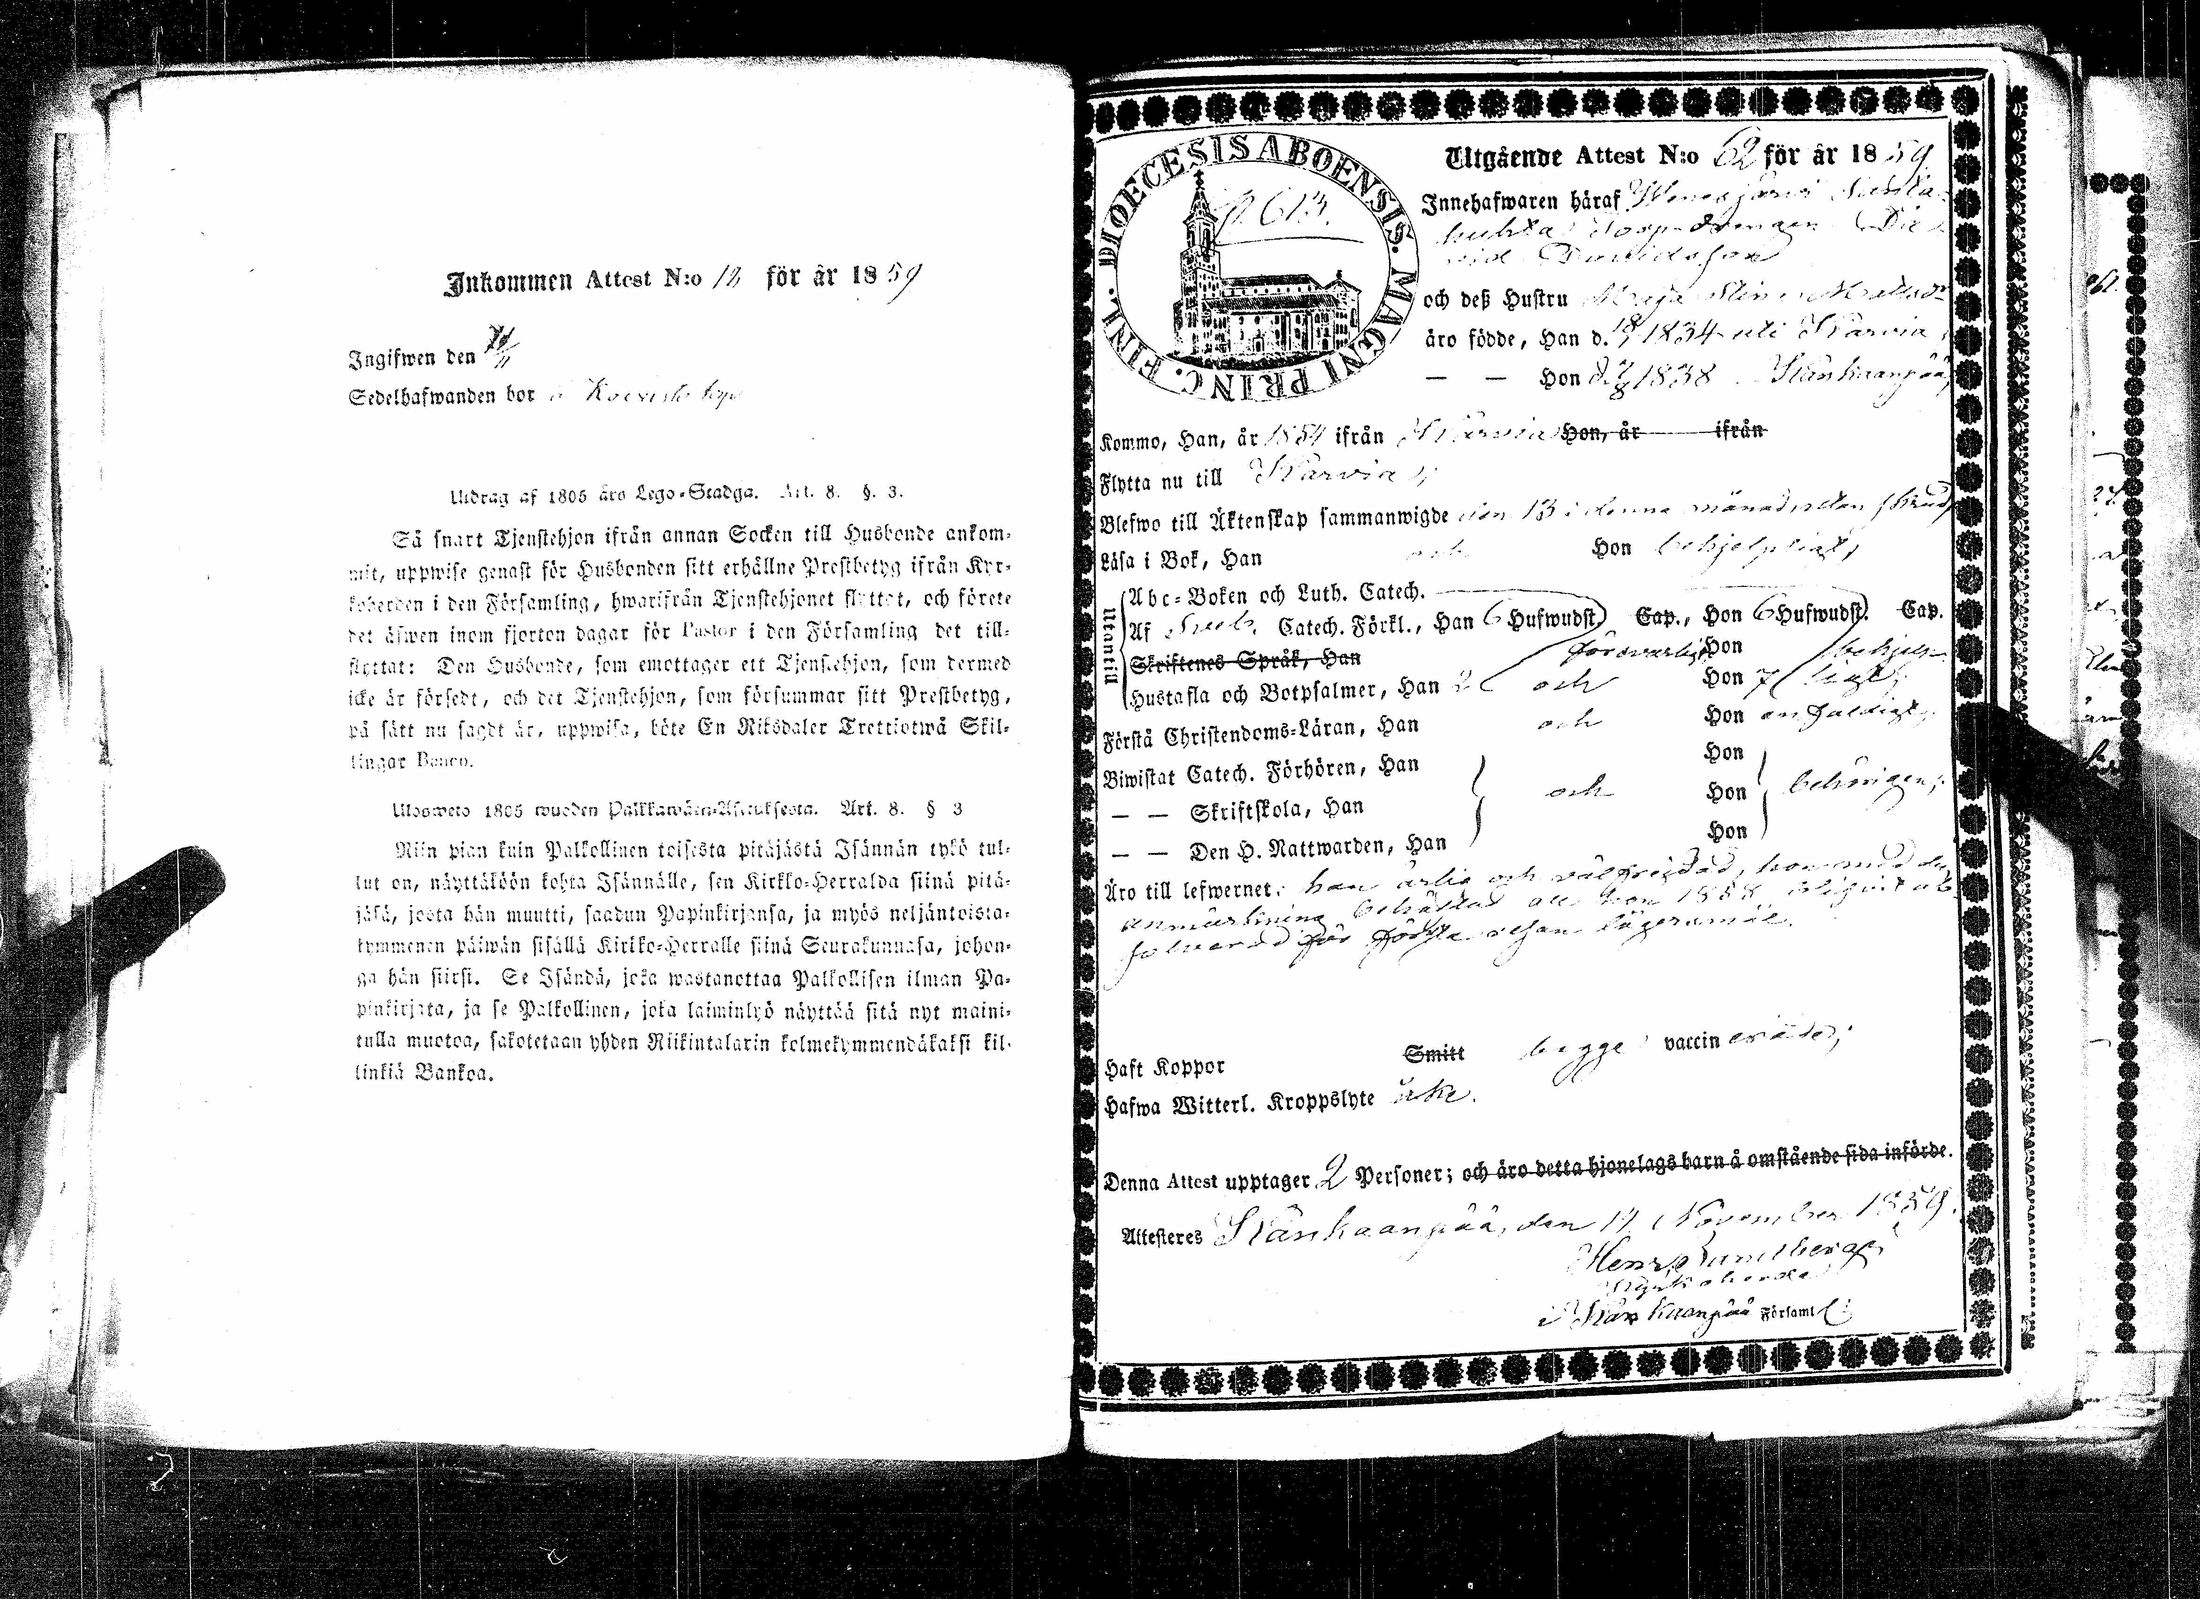 Inkommen Attest N:o 12 för år 1859
Ingifwen den
Sedelhafwanden bor
Utdrag af 1805 års Lego-Stadga. Art. 8. §. 3.
Så snart Tjenstehjon ifrån annan Socken till Husbonde ankom-
mit, uppwise genast för Husbonden sitt erhållne Prestbetyg ifrån Kyr-
koherden i den Församling, hwarifrån Tjenstehjonet flyttat, och förete
det äfwen inom fjorton dagar för Pastor i den Församling det till-
flyttat: Den Husbonde, som emottager ett Tjenstehjon, som dermed
icke är försedt, och det Tjenstehjon, som försummar sitt Prestbetyg,
på sätt nu sagdt är, uppwisa, böte En Riksdaler Trettiotwå Skil-
lingar Banco.
Ulosweto 1805 wuoden Palkkawäen-Asetuksesta. Art. 8. § 3
Niin pian kuin Palkollinen toisesta pitäjästä Isännän tykö tul-
lut on, näyttäköön kohta Isännälle, sen Kirkko-Herralda siinä pitä-
jäsä, josta hän muutti, saadun Papinkirjansa, ja myös neljäntoista-
kymmenen päiwän sisällä Kirkko-Herralle siinä Seurakunnasa, johon-
ga hän siirsi. Se Isändä, joka wastanottaa Palkollisen ilman Pa-
pinkirjata, ja se Palkollinen, joka laiminlyö näyttää sitä nyt maini-
tulla muotoa, sakotetaan yhden Riikintalarin kolmekymmendäkaksi kil-
linkiä Bankoa.
DIOECESIS ABOENSIS. MAGNI PRINC. FINL.
p. 613.
Utgående Attest N:o 62 för år 1859
Innehafwaren häraf
Torp-drengen Da-
vid Davidsson
och deß Hustru Maja Stina
äro födde, Han d. 1834 uti Karvia
— — Hon d. 1838 Kankaanpää
Kommo, Han, år 1854 ifrån Karvia Hon, år ifrån
Flytta nu till Karvia;
Blefwo till Äktenskap sammanwigde den 13 i denna månad
Läsa i Bok, Han och Hon behjelpligt,
Utantill
Abc-Boken och Luth. Catech.
Af Sveb. Catech. Förkl., Han 6 Hufwudst. Cap., Hon 6 Hufwudst. Cap.
Skriftenes Språk, Han försvarligt Hon behjelp-
Hustafla och Botpsalmer, Han 2 och Hon 7 ligt;
Förstå Christendoms-Läran, Han och Hon enfaldigt;
Biwistat Catech. Förhören, Han Hon
— — Skriftskola, Han och Hon behörigen;
— — Den H. Nattwarden, Han Hon
Äro till lefwernet: han ärlig och välfrejdad, hon med den
anmärkning behäftad att hon 1858 blifvit ab-
solverad för första resan lägersmål.
Haft Koppor Smitt begge vaccinerade;
Hafwa Witterl. Kroppslyte icke.
Denna Attest upptager 2 Personer; och äro detta hjonelags barn å omstående sida införde.
Attesteras Kankaanpää, den November 1859.
Kyrkoherde
i Kankaanpää Församl.